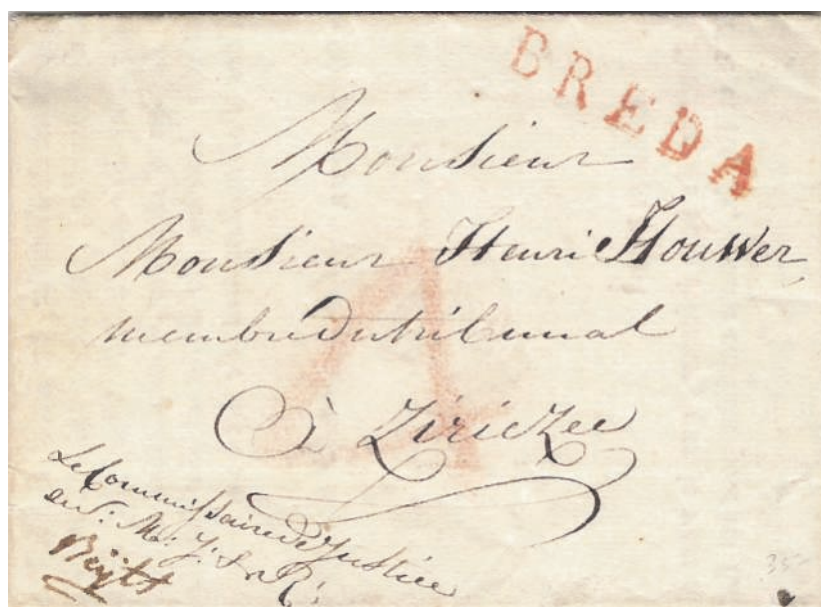 BREDA
Monsieur
Monsieur Henri Houwer
membre du tribunal
à Ziriczee
Le Commissaire de Justice
Beyts
35